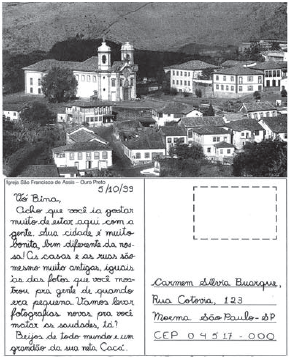 Igreja São Francisco de Assis – Ouro Preto
5/10/99
Vó Bina,
Acho que você ia gostar
muito de estar aqui com a
gente. Sua cidade é muito
bonita, bem diferente da nos-
sa! As casas e as ruas são
mesmo muito antigas, iguais
às das fotos que você mos-
trou pra gente de quando
era pequena. Vamos levar
fotografias novas pra você
matar as saudades, tá?
Beijos de todo mundo e um
grandão da sua neta Cacá.
Carmen Silvia Buarque,
Rua Cotovia, 123
Moema São Paulo - SP
CEP 04517-000